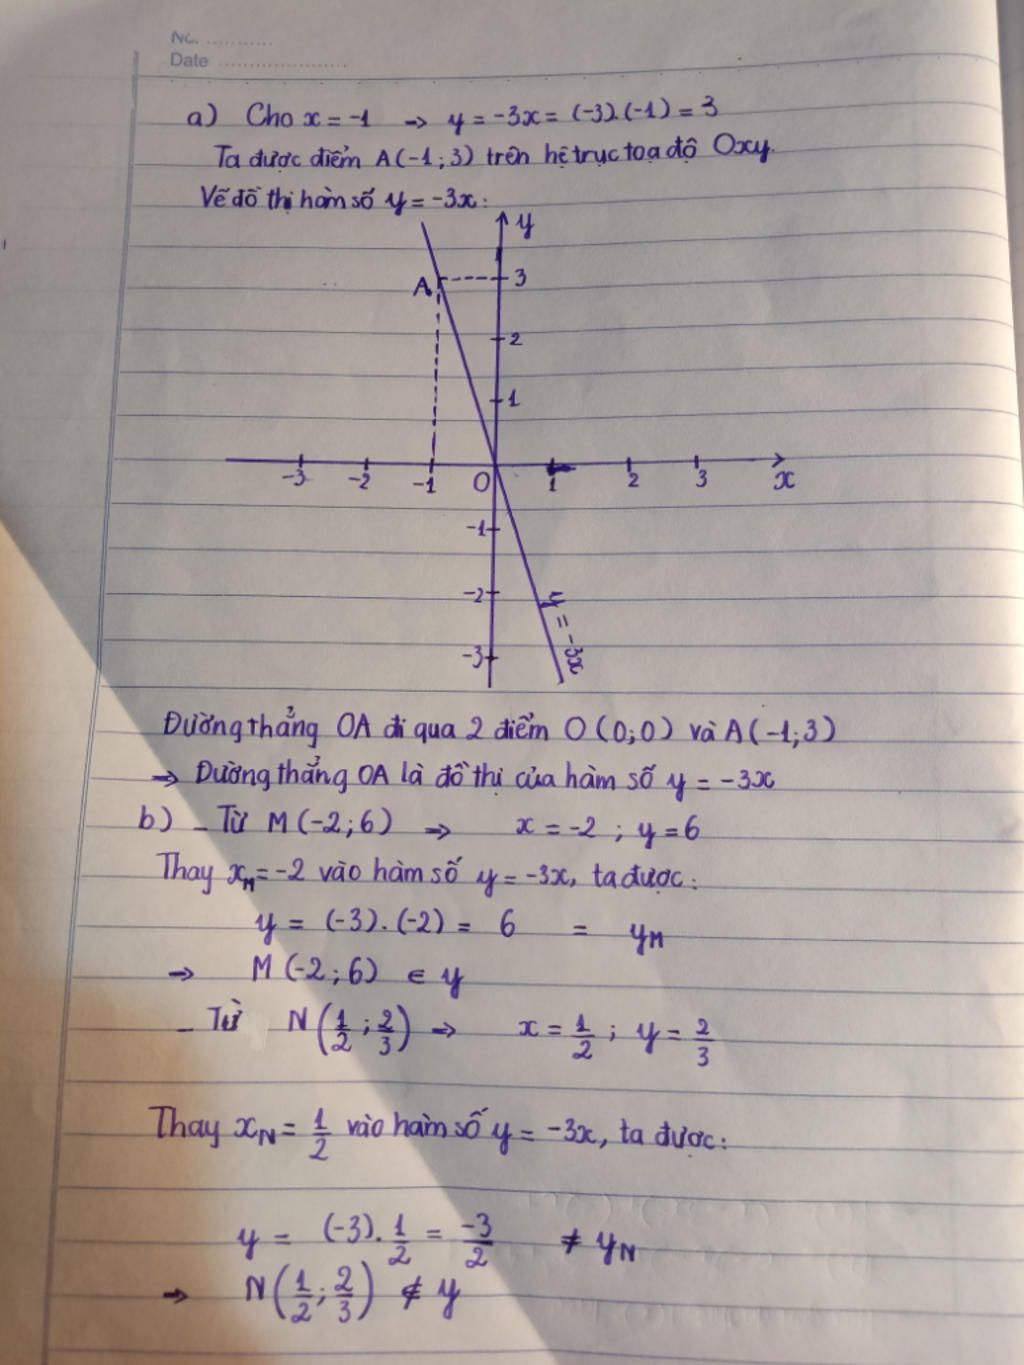 No. ...........
Date .....................
a) Cho x = -1 → y = -3x = (-3).(-1) = 3
Ta được điểm A(-1;3) trên hệ trục toạ độ Oxy.
Vẽ đồ thị hàm số y = -3x:
y
A
3
2
1
-3 -2 -1 O 1 2 3 x
-1
-2
-3
y = -3x
Đường thẳng OA đi qua 2 điểm O (0;0) và A(-1;3)
→ Đường thẳng OA là đồ thị của hàm số y = -3x
b) - Từ M(-2;6) → x = -2 ; y = 6
Thay x_M = -2 vào hàm số y = -3x, ta được:
y = (-3).(-2) = 6 = y_M
→ M(-2;6) ∈ y
- Từ N(1/2;2/3) → x = 1/2 ; y = 2/3
Thay x_N = 1/2 vào hàm số y = -3x, ta được:
y = (-3).1/2 = -3/2 ≠ y_N
→ N(1/2;2/3) ∉ y